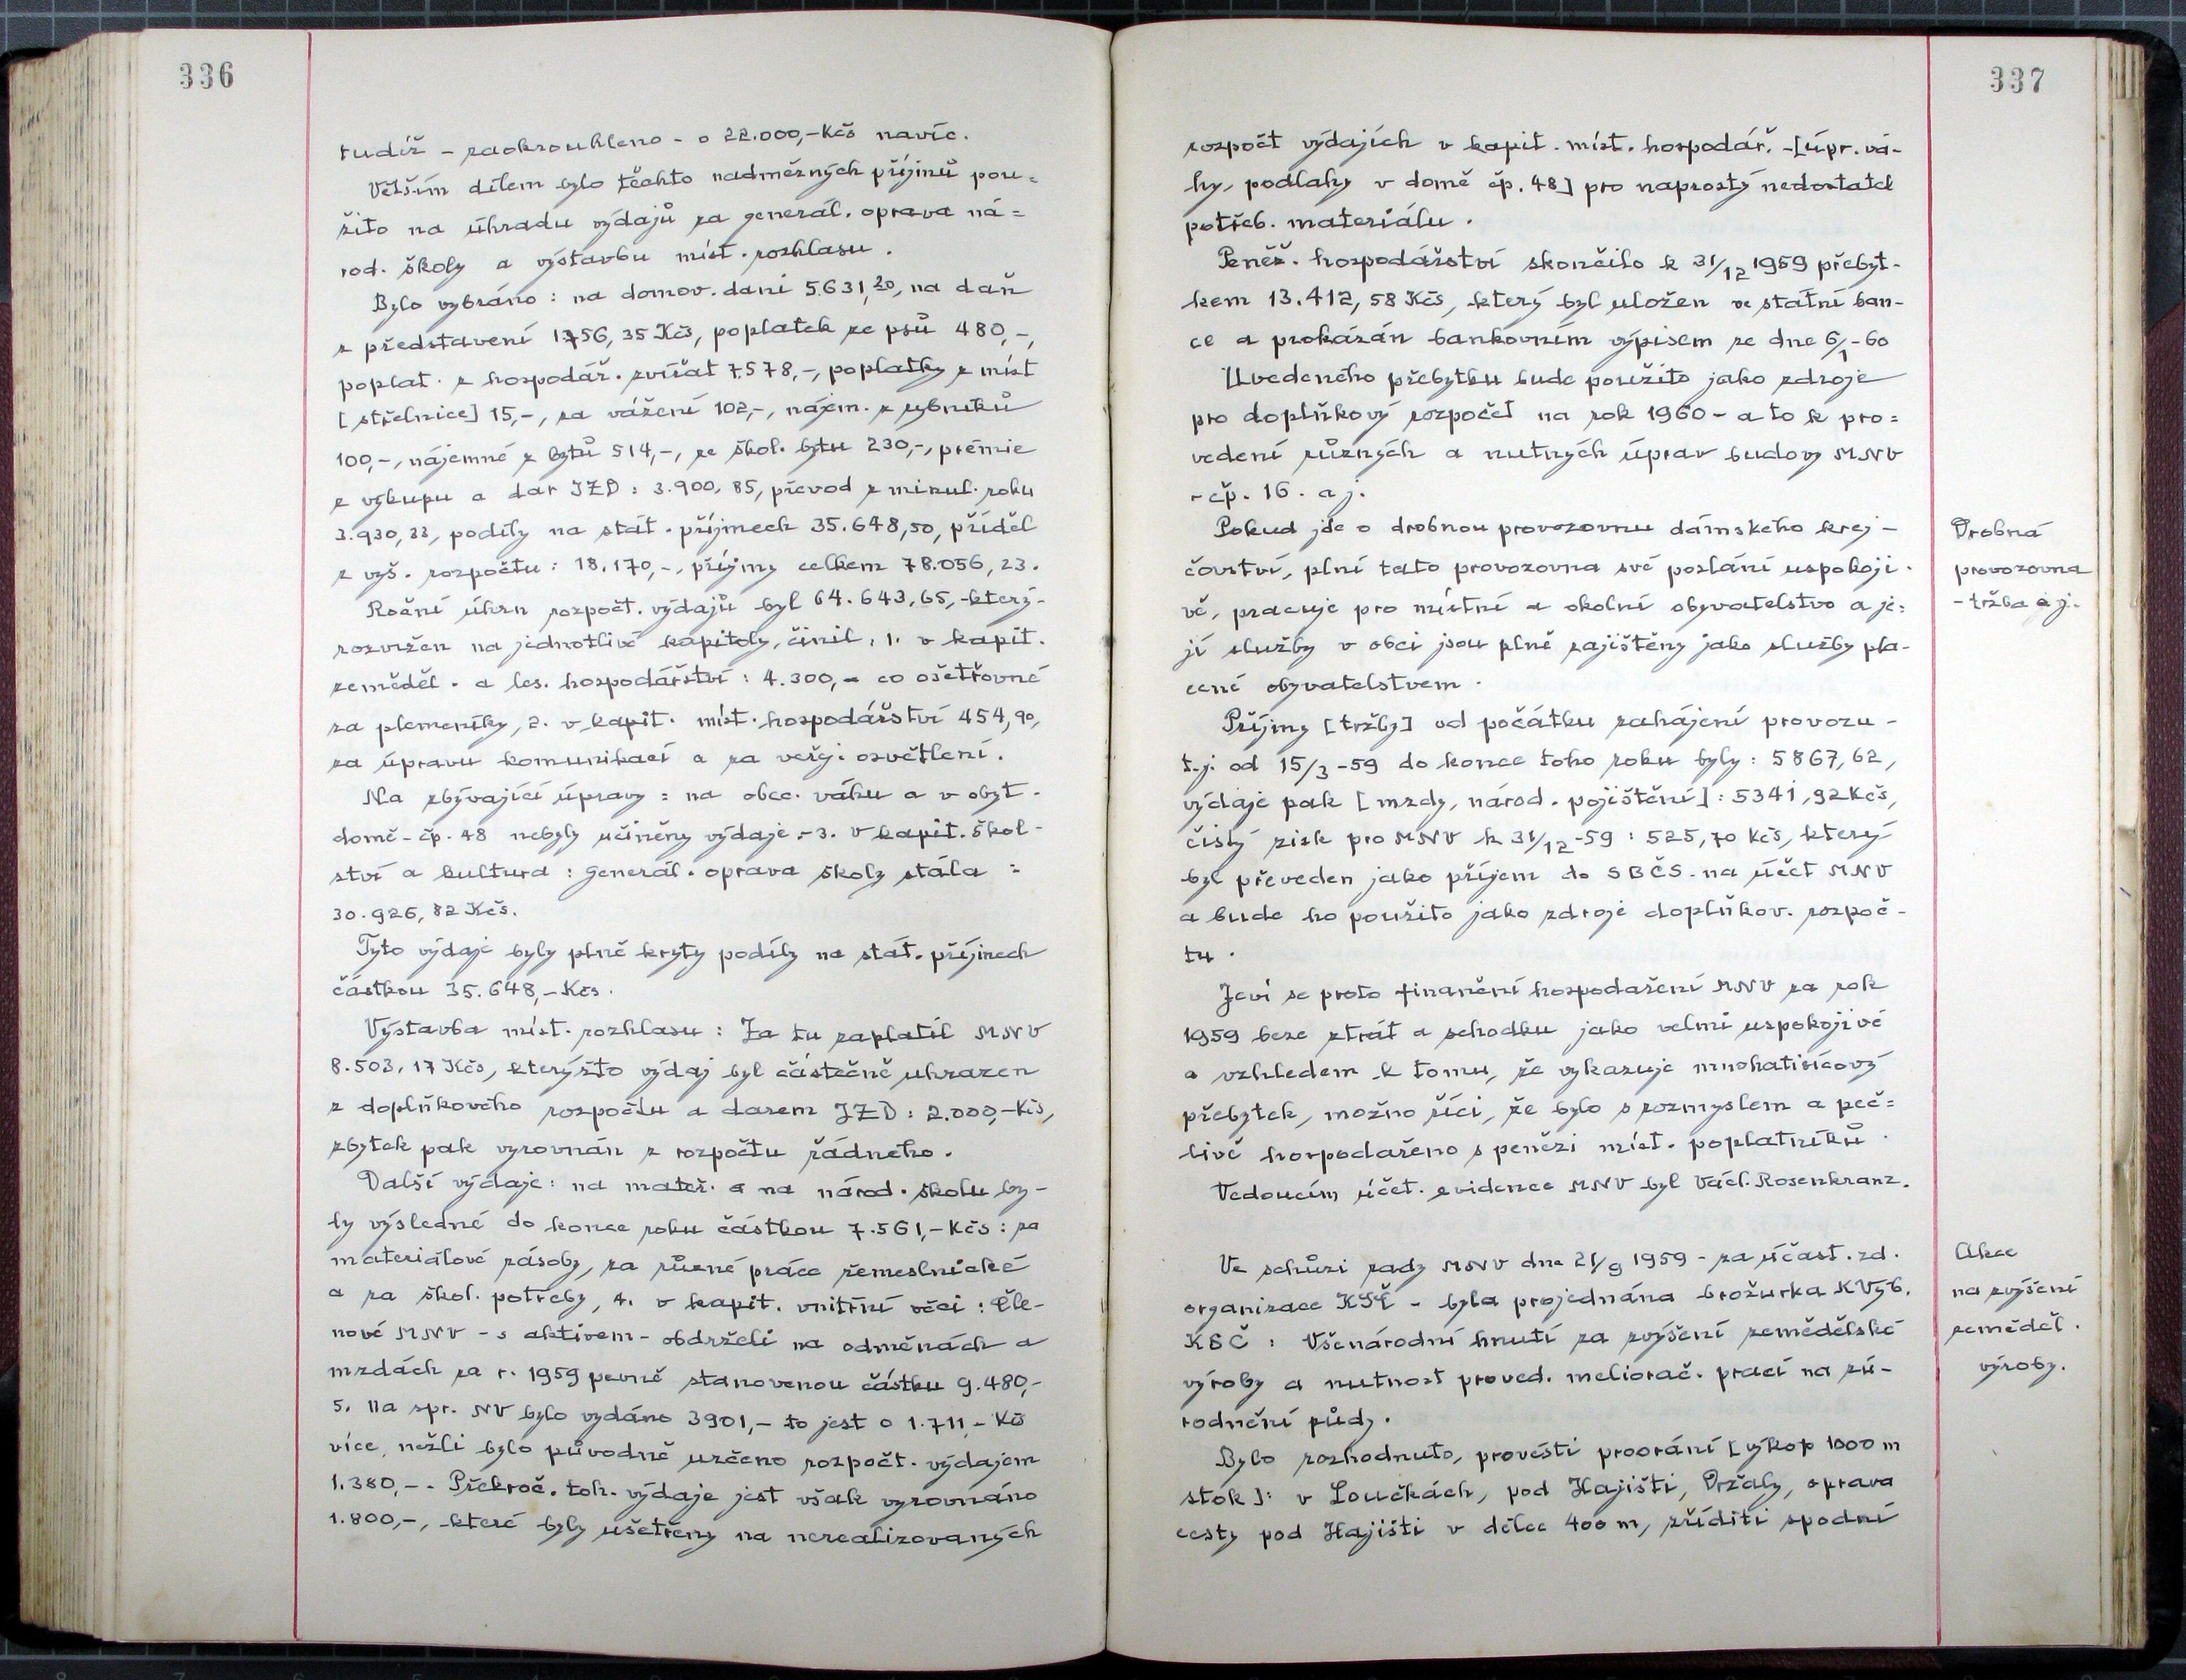 336
tudíž - zaokrouhleno - o 22.000,-Kčs navíc.
Větším dílem bylo těchto nadměrných příjmů pou=
žito na úhradu výdajů za generál. oprava ná=
rod. školy a výstavbu míst. rozhlasu.
Bylo vybráno: na domov. dani 5.631,20, na daň
z představení 1756,35 Kčs, poplatek ze psů 480,-,
poplat. z hospodář. zvířat 7.578,-, poplatky z míst
[střelnice] 15,-, za vážení 102,-, nájem. z rybníků
100,-, nájemné z bytů 514,-, ze škol. bytu 230,-, prémie
z výkupu a dar JZD: 3.900,85, převod z minul. roku
3.930,33, podíly na stát. příjmech 35.648,50, příděl
z vyš. rozpočtu: 18.170,-, příjmy celkem 78.056,23.
Roční úhrn rozpočt. výdajů byl 64.643,65,-který-
rozvržen na jednotlivé kapitoly, činil, 1. v kapit.
zeměděl. a les. hospodářství: 4.300,- co ošetřovné
za plemeníky, 2. v kapit. míst. hospodářství 454,90,
za úpravu komunikací a za veřej. osvětlení.
Na zbývající úpravy: na obec. váhu a v obyt.
domě-čp. 48 nebyly učiněny výdaje.-3. V kapit. škol-
ství a kultura: generál. oprava školy stála:
30.926,82 Kčs.
Tyto výdaje byly plně kryty podíly na stát. příjmech
částkou 35.648,-Kčs.
Výstavba míst. rozhlasu: Za tu zaplatil MNV
8.503,17 Kčs, kterýžto výdaj byl částečně uhrazen
z doplňkového rozpočtu a darem JZD: 2.000,-Kčs,
zbytek pak vyrovnán z rozpočtu řádného.
Další výdaje: na mateř. a na národ. školu by-
ly výsledné do konce roku částkou 7.561,-Kčs: za
materiálové zásoby, za různé práce řemeslnické
a za škol. potřeby, 4. v kapit. vnitřní věci: Čle-
nové MNV - s aktivem - obdrželi na odměnách a
mzdách za r. 1959 pevně stanovenou částku 9.480,-
5. Na spr. NV bylo vydáno 3901,- to jest o 1.711,- Kčs
více, nežli bylo původně určeno rozpočt. výdajem
1.380,-. Překroč. toh. výdaje jest však vyrovnáno
1.800,-, které byly ušetřeny na nerealizovaných
337
rozpočt výdajích v kapit. míst. hospodář. -[úpr. vá-
hy, podlahy v domě čp. 48] pro naprostý nedostatek
potřeb. materiálu.
Peněž. hospodářství skončilo k 31/12 1959 přebyt-
kem 13.412,58 Kčs, který byl uložen ve státní ban-
ce a prokázán bankovním výpisem ze dne 6/1-60
Uvedeného přebytku bude použito jako zdroje
pro doplňkový rozpočet na rok 1960 - a to k pro=
vedení různých a nutných úprav budovy MNV
-čp. 16. a j.
Pokud jde o drobnou provozovnu dámského krej-
čovství, plní tato provozovna své poslání uspokoji-
vě, pracuje pro místní a okolní obyvatelstvo a je=
jí služby v obci jsou plně zajištěny jako služby pla-
cené obyvatelstvem.
Drobná
provozovna
- tržba a j.
Příjmy [tržby] od počátku zahájení provozu -
t.j. od 15/3-59 do konce toho roku byly: 5867,62,
výdaje pak [mzdy, národ. pojištění]: 5341,92 Kčs,
čistý zisk pro MNV k 31/12-59: 525,70 Kčs, který
byl převeden jako příjem do SBČS. na účet MNV
a bude ho použito jako zdroje doplňkov. rozpoč-
tu.
Jeví se proto finanční hospodaření MNV za rok
1959 beze ztrát a schodku jako velmi uspokojivé
a vzhledem k tomu, že vykazuje mnohatisícový
přebytek, možno říci, že bylo s rozmyslem a peč=
livě hospodařeno s penězi míst. poplatníků.
Vedoucím účet. evidence MNV byl Václ. Rosenkranz.
Ve schůzi rady MNV dne 21/9 1959 - za účast. zd.
organizace KSČ - byla projednána brožurka KVýb.
KSČ: Všenárodní hnutí za zvýšení zemědělské
výroby a nutnost proved. meliorač. prací na zú-
rodnění půdy.
Akce
na zvýšení
zeměděl.
výroby.
Bylo rozhodnuto, provésti proorání [výkop 1000 m
stok]: v Loučkách, pod Hajišti, Držaly, oprava
cesty pod Hajišti v délce 400 m, zříditi spodní